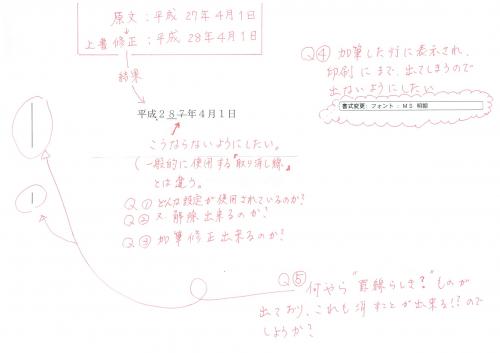 原文:平成 27年4月1日
上書修正:平成 28年4月1日
結果
平成287年4月1日
こうならないようにしたい。
(一般的に使用する『取り消し線』
とは違う。
Q① どんな設定が使用されているのか?
Q② 又 解除出来るのか?
Q③ 加筆修正出来るのか?
Q④ 加筆した行に表示され、
印刷にまで、出てしまうので
出ないようにしたい
書式変更: フォント : MS 明朝
Q⑤
何やら"罫線らしき?"ものが
出ており、これも消すことが出来る!?ので
しようか?